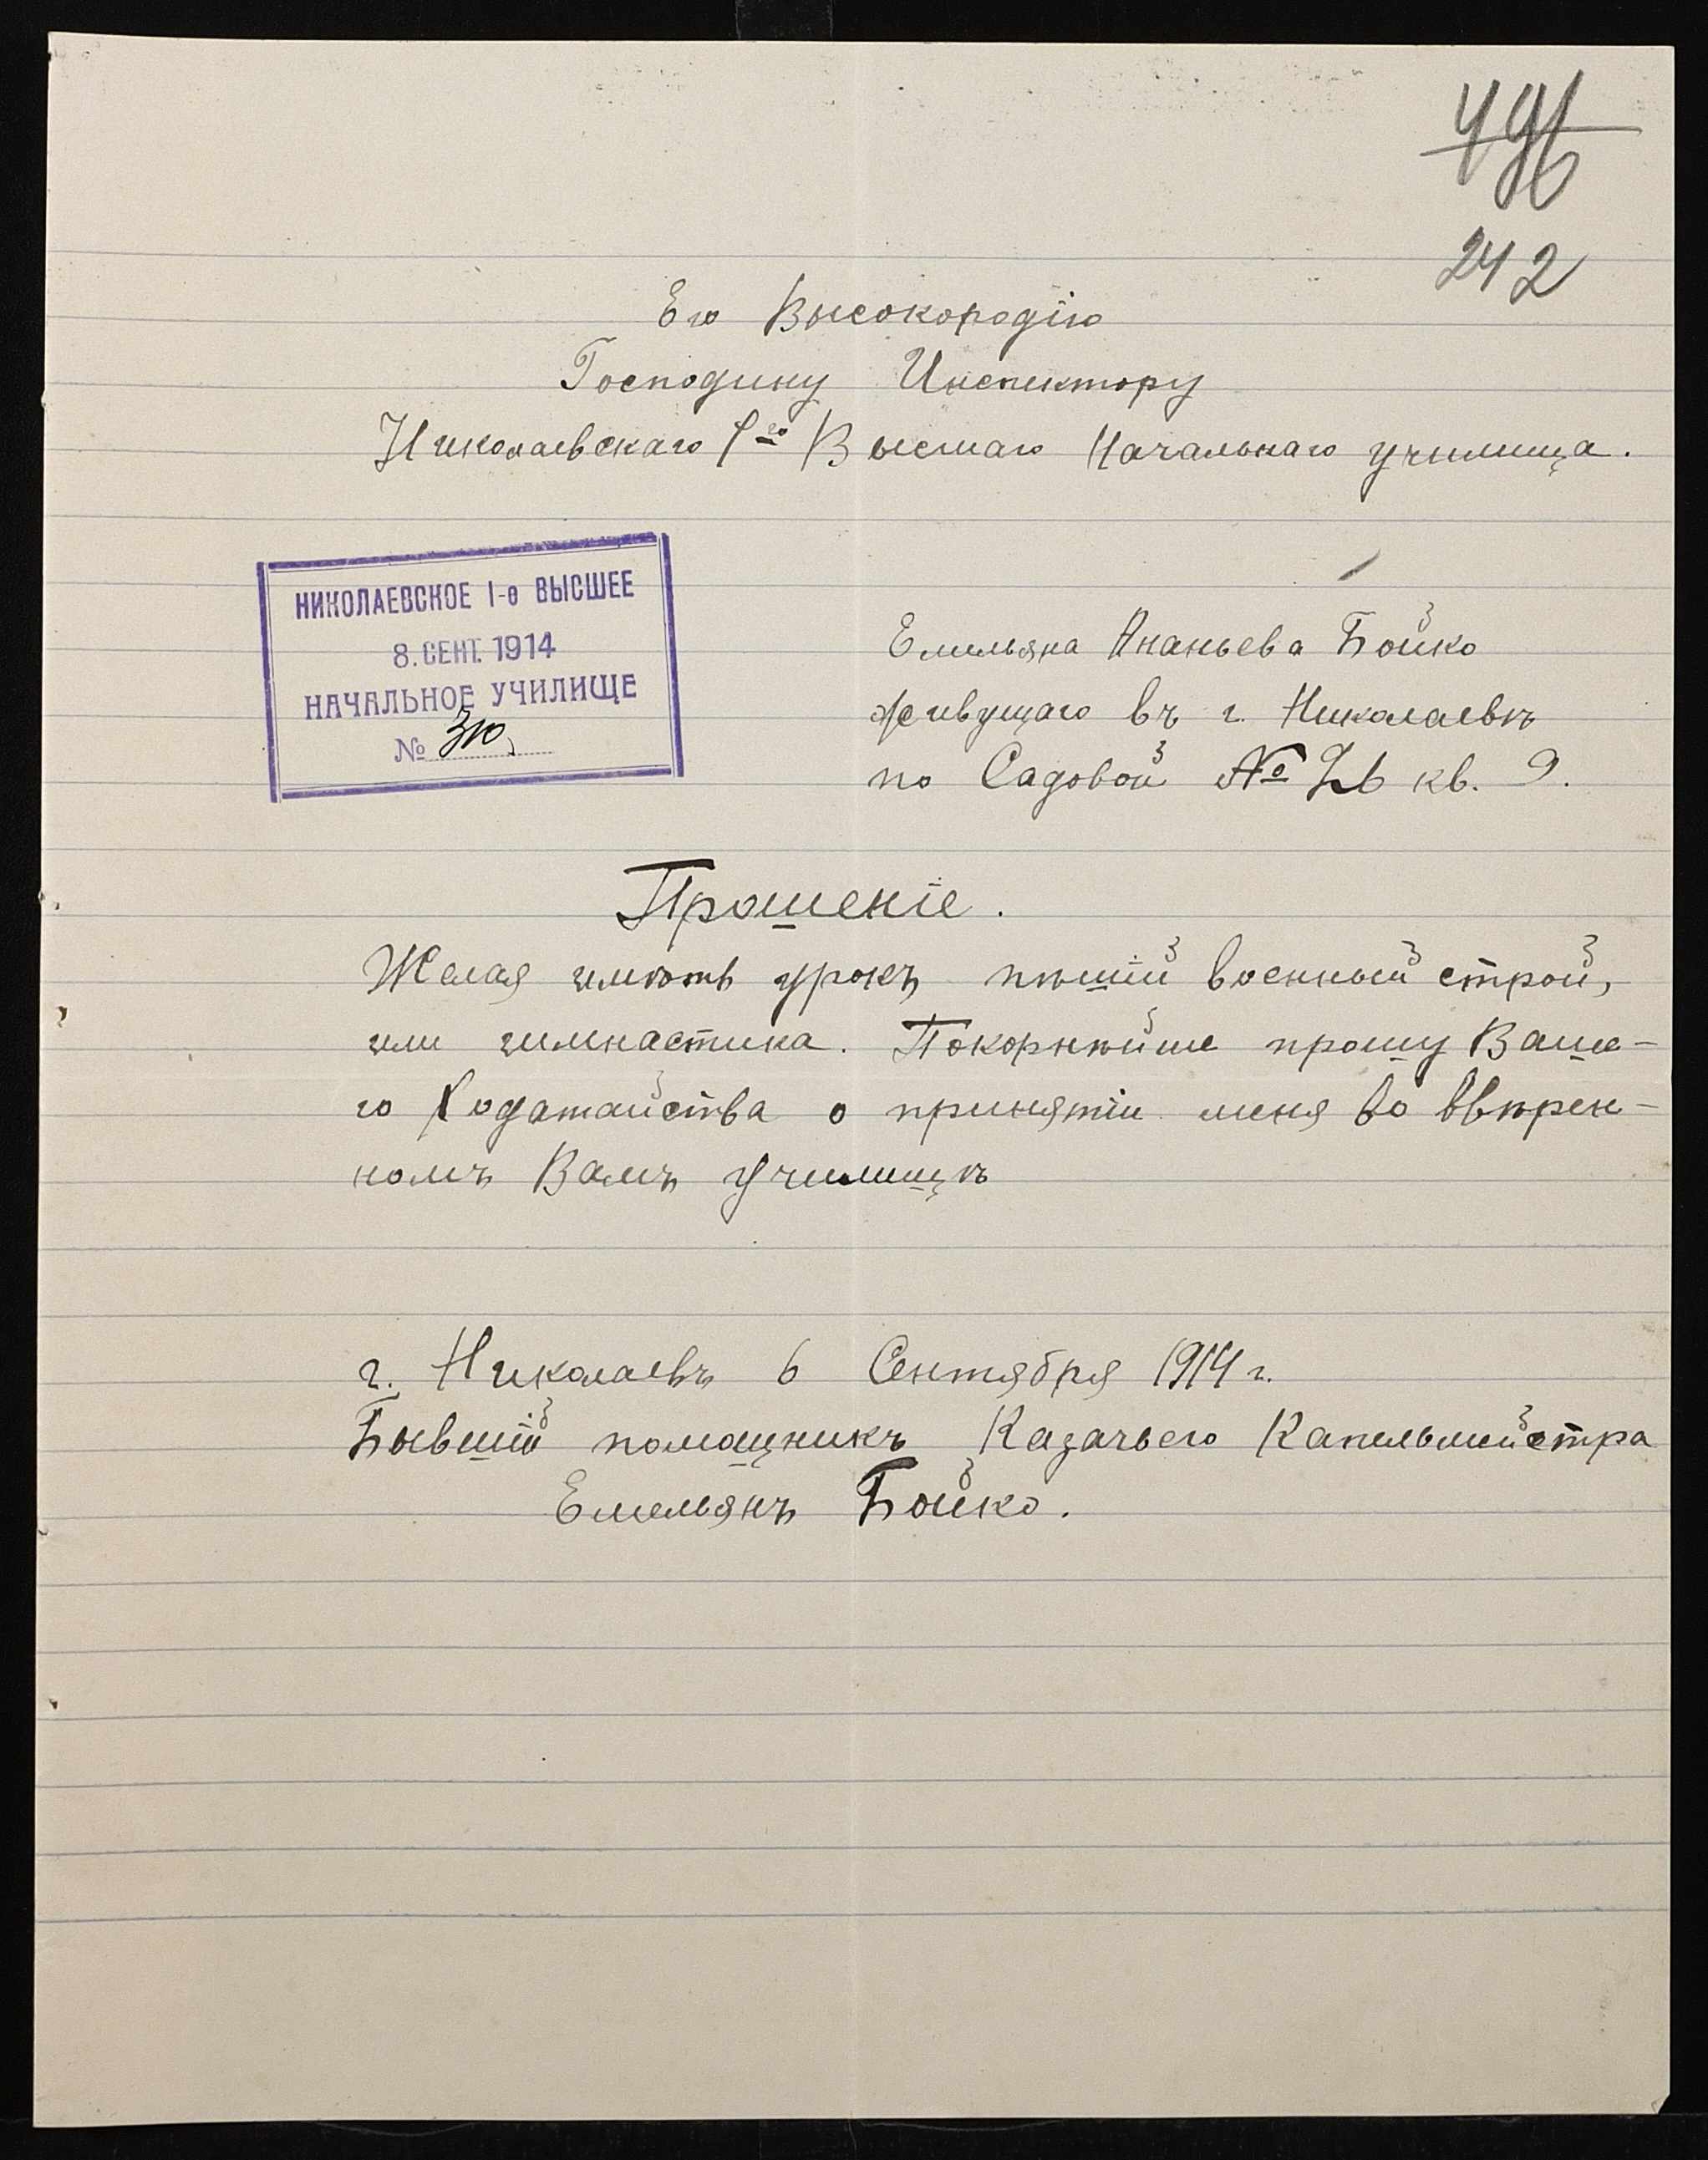 496
242
Его Высокородію
Господину Инспектору
Николаевскаго 1го Высшаго Начальнаго училища.
НИКОЛАЕВСКОЕ 1-е ВЫСШЕЕ
8. СЕНТ. 1914
НАЧАЛЬНОЕ УЧИЛИЩЕ
№
Емельяна Ананьева Бойко
живущаго въ г. Николаевѣ
по Садовой № 26 кв. 9.
Прошеніе.
Желая имѣть урокъ пѣшій военный строй,
или гимнастика. Покорнѣйше прошу Ваше-
го Ходатайства о принятіи меня во ввѣрен-
номъ Вамъ училищѣ
г. Николаевъ 6 Сентября 1914 г.
Бывшій помощникъ Казачьего Капельмейстра
Емельянъ Бойко.